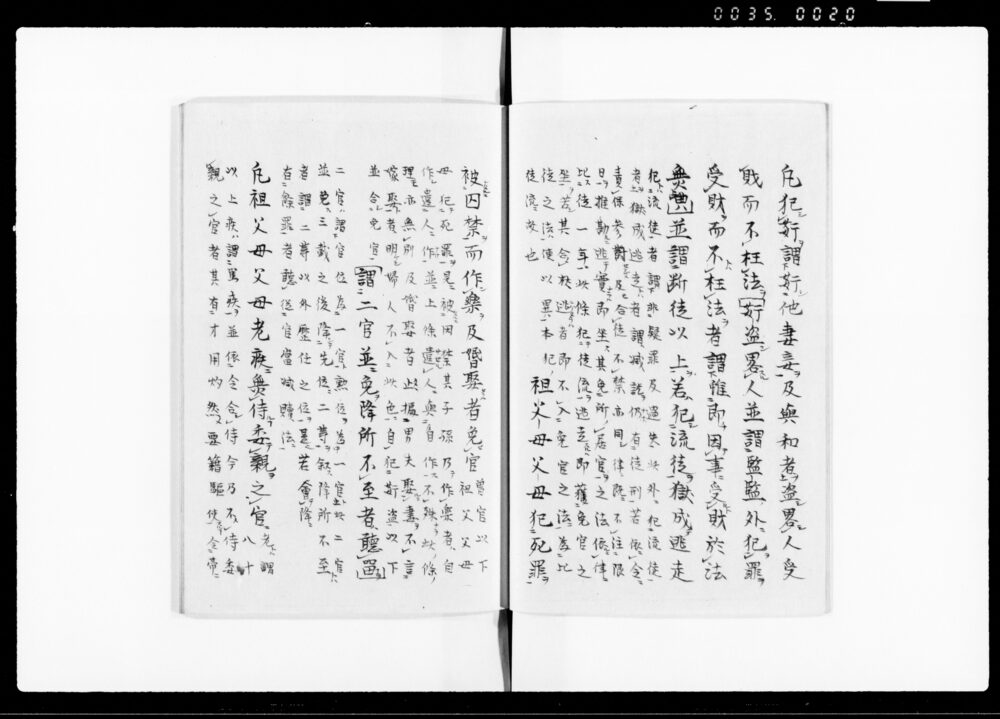 0035. 0020
凡犯奸謂奸他妻妾及與和者盗畧人受
財而不枉法奸盗畧人並謂監監外犯罪
受財而不枉法者謂雖即因事受財於法
無 並謂断徒以上若犯流徒獄成逃走
犯流徒者謂非疑罪及過失此外犯流徒
者獄成逃走者謂贓 仍有徒刑若依令
責保参對及合徒不禁亦用律除不注限
日推勘逃實即坐其免所居官之法依律
比徒一年此條犯徒流逃走即獲免官之
坐若其合杖逃者即不入免官之法為比
徒之法使以異本犯
徒流故也
祖父母父母犯死罪
被囚禁而作樂及婚娶者免官
曾官以下
祖父母父
母犯死罪見被囚禁其子孫乃作樂者自
作遣人作並上條遣人與自作不殊此條
理亦無別及婚娶者止據男夫娶妻不言
嫁娶者明婦人不入此也自犯奸盗以下
並合免官
謂二官並免降所不至者聽留
二官謂官位為一官勲位為一官此二官
並免三載之後降先位二等叙降所不至
者謂二等以外歴任之位是若會降
有餘罪者聽従官當減贖法
凡祖父母父母老疾無侍委親之官
老謂
八十
以上疾謂篤疾並依令合侍今乃不侍委
親之官者其有才用灼然要籍駈使令帯